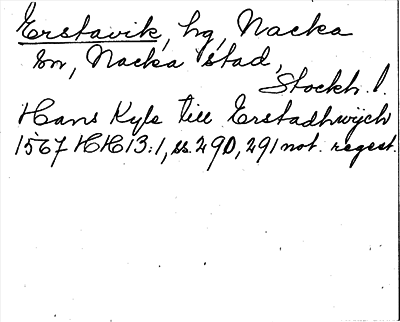 Erstavik, hg, Nacka
sn, Nacka stad,
Stockh. l.
Hans Kyle till Erstadhwijch
1567 HH 13:1, ss. 290, 291 not. regest.